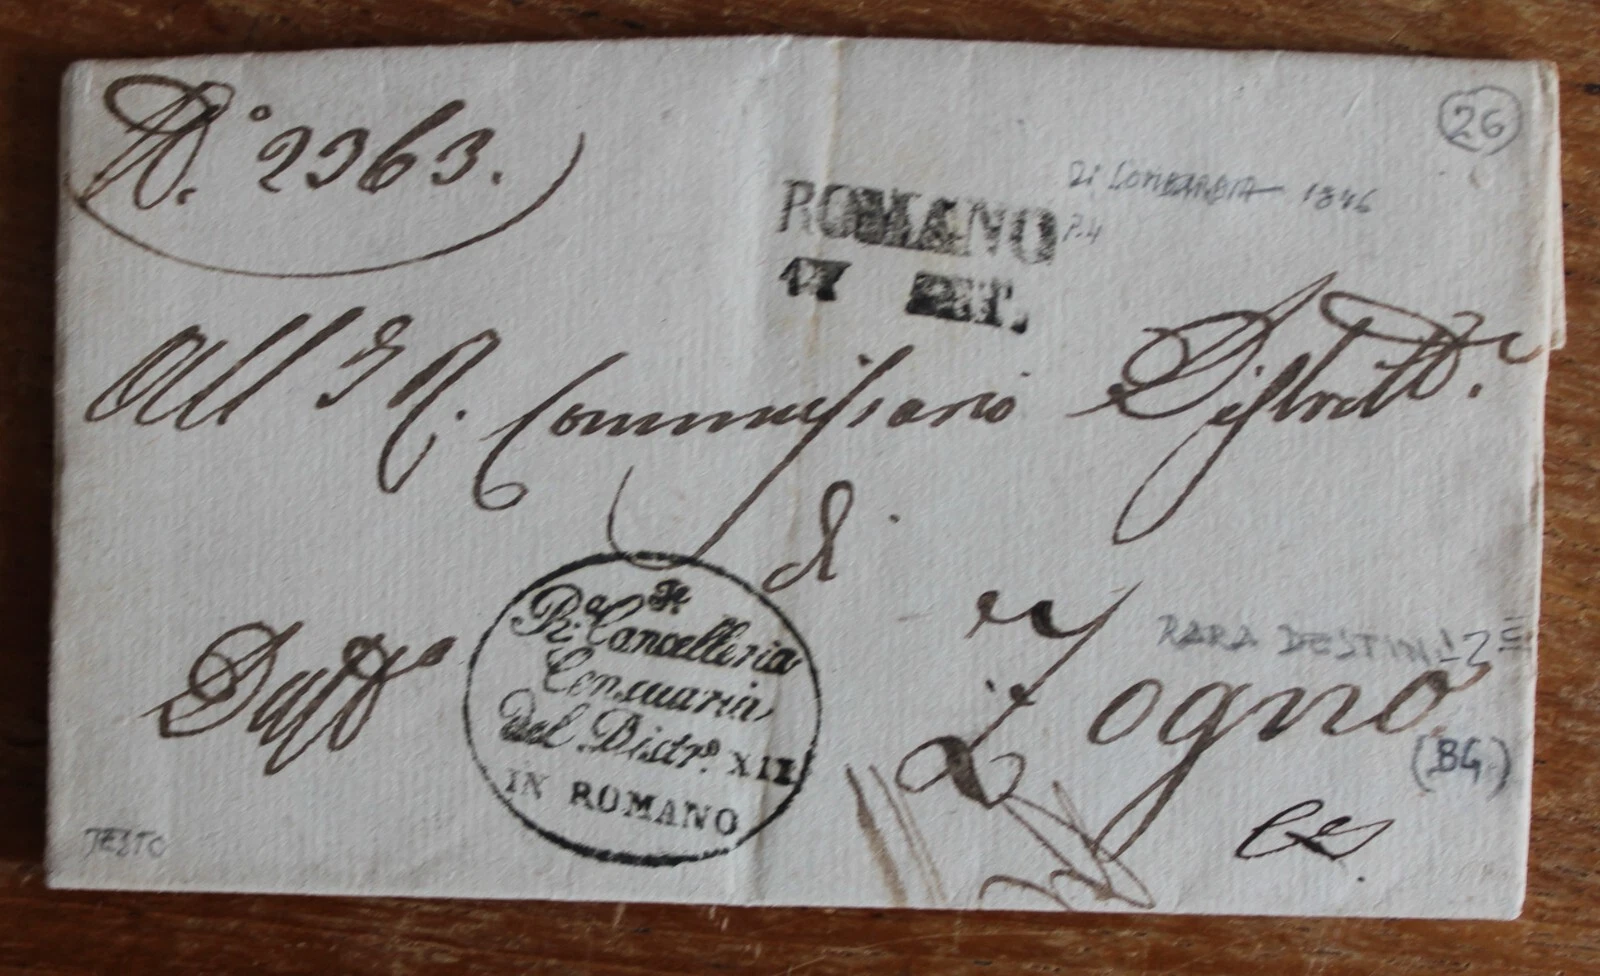 N.° 2363.
26
di LOMBARDIA 1846
P.4
ROMANO
17 SET.
All I R. Commissario Distrett.e
di
Zogno
RARA DESTINAZ
(BG)
R.a Cancelleria
Censuaria
del Distr.o XII
IN ROMANO
TESTO